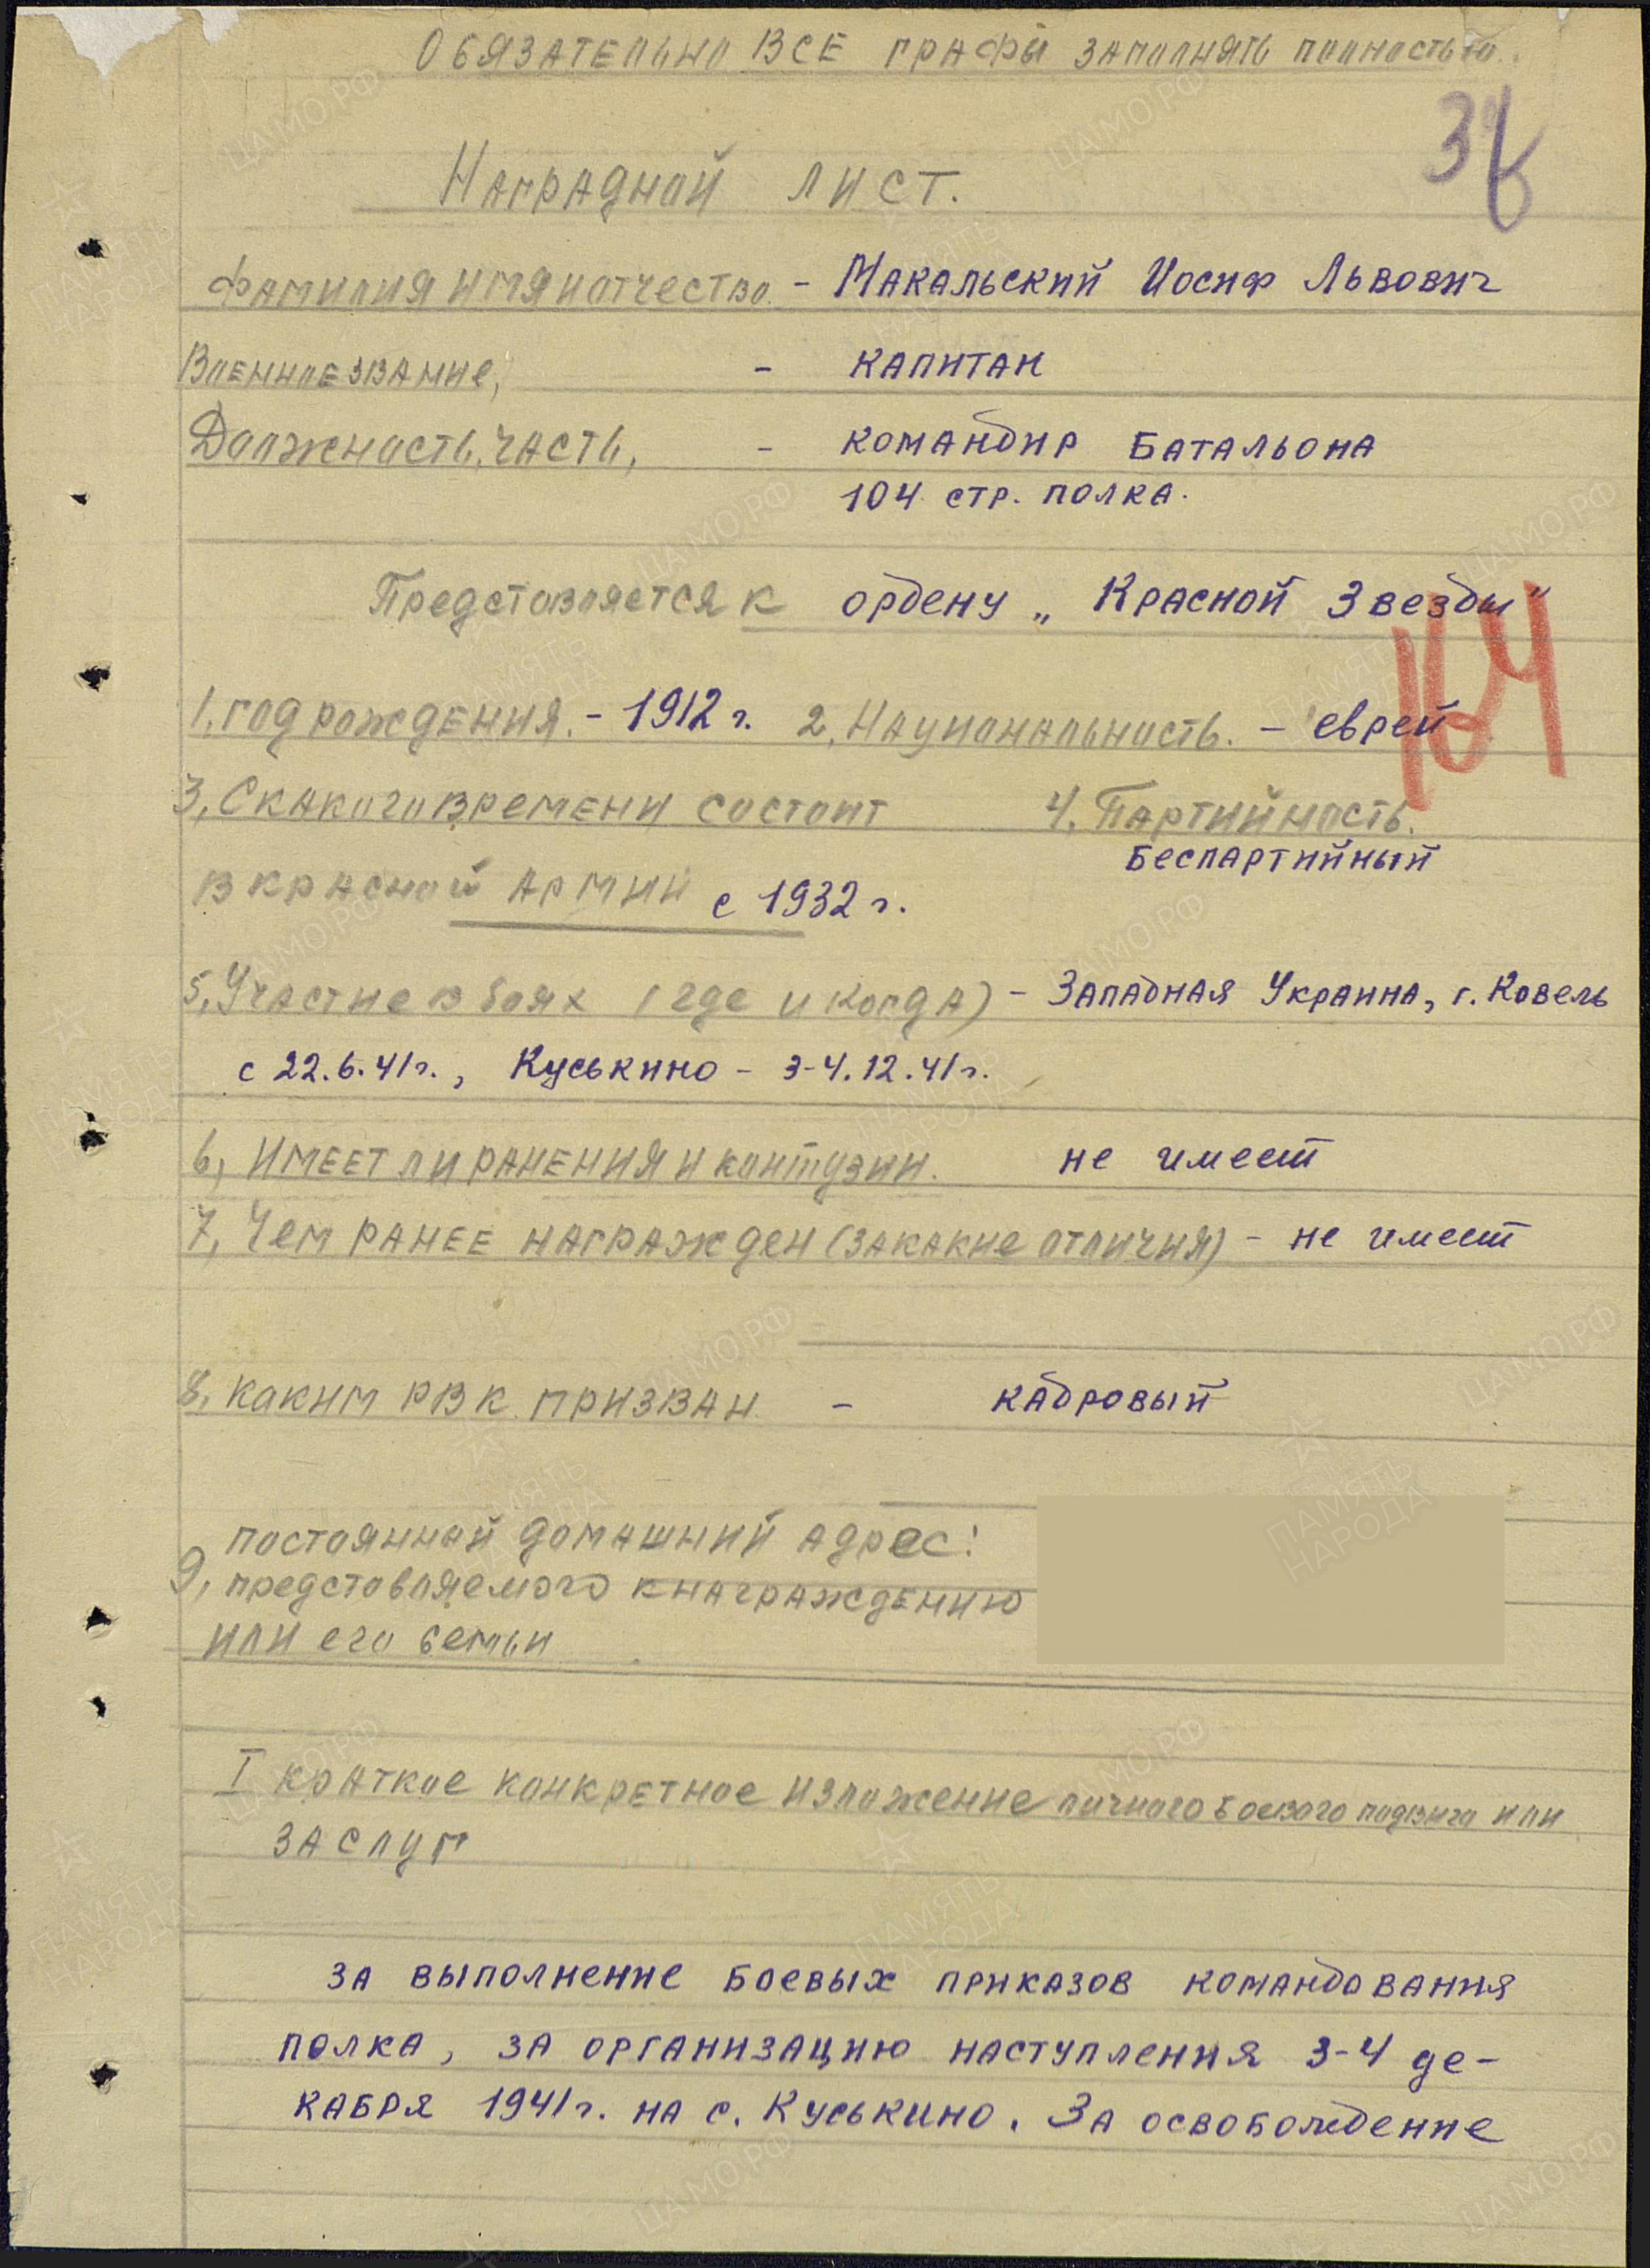 Обязательно все графы заполнять полностью.
Наградной лист.
Фамилия имя и отчество - Макальский Иосиф Львович
Военное звание, - капитан
Должность, часть, - командир батальона
104 стр. полка.
Представляется к ордену „Красной Звезды"
104
1. год рождения. - 1912 г. 2, Национальность. - еврей
3, С какого времени состоит 4. Партийность.
Беспартийный
в красной армии с 1932 г.
5, Участие в боях (где и когда) - Западная Украина, г. Ковель
с 22.6.41г., Куськино - 3-4.12.41г.
6, имеет ли ранения и контузии. не имеет
7, Чем ранее награжден (за какие отличия) - не имеет
8, каким РВК призван - кадровый
постоянный домашний адрес:
9, представляемого к награждению
или его семьи
I краткое конкретное изложение личного боевого подвига или
заслуг
за выполнение боевых приказов командования
полка, за организацию наступления 3-4 де-
кабря 1941г. на с. Куськино. За освобождение
ЦАМО РФ
ПАМЯТЬ НАРОДА